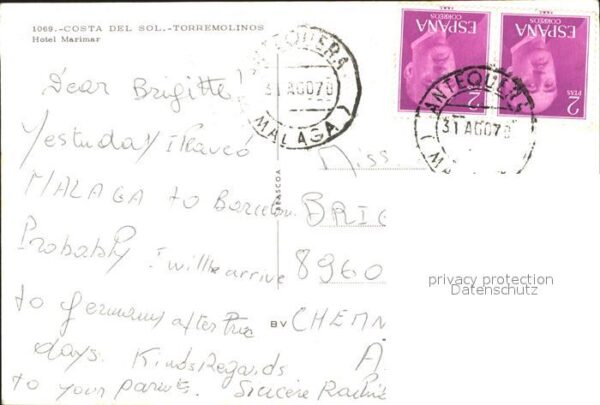 1069.-COSTA DEL SOL.-TORREMOLINOS
Hotel Marimar
ESPAÑA
CORREOS
2
PTAS
ESPAÑA
CORREOS
2
PTAS
ANTEQUERA
31 AGO 70
(MALAGA)
ANTEQUERA
31 AGO 70
Dear Brigitte!
Yestuday I
MALAGA to Barcelon
Probably I will be arrive
to Germany after
days. Kinds Regards
to your parents. Sincere
Miss
BRIG
8960
CHEMN
A
BEASCOA
BV
privacy protection
Datenschutz